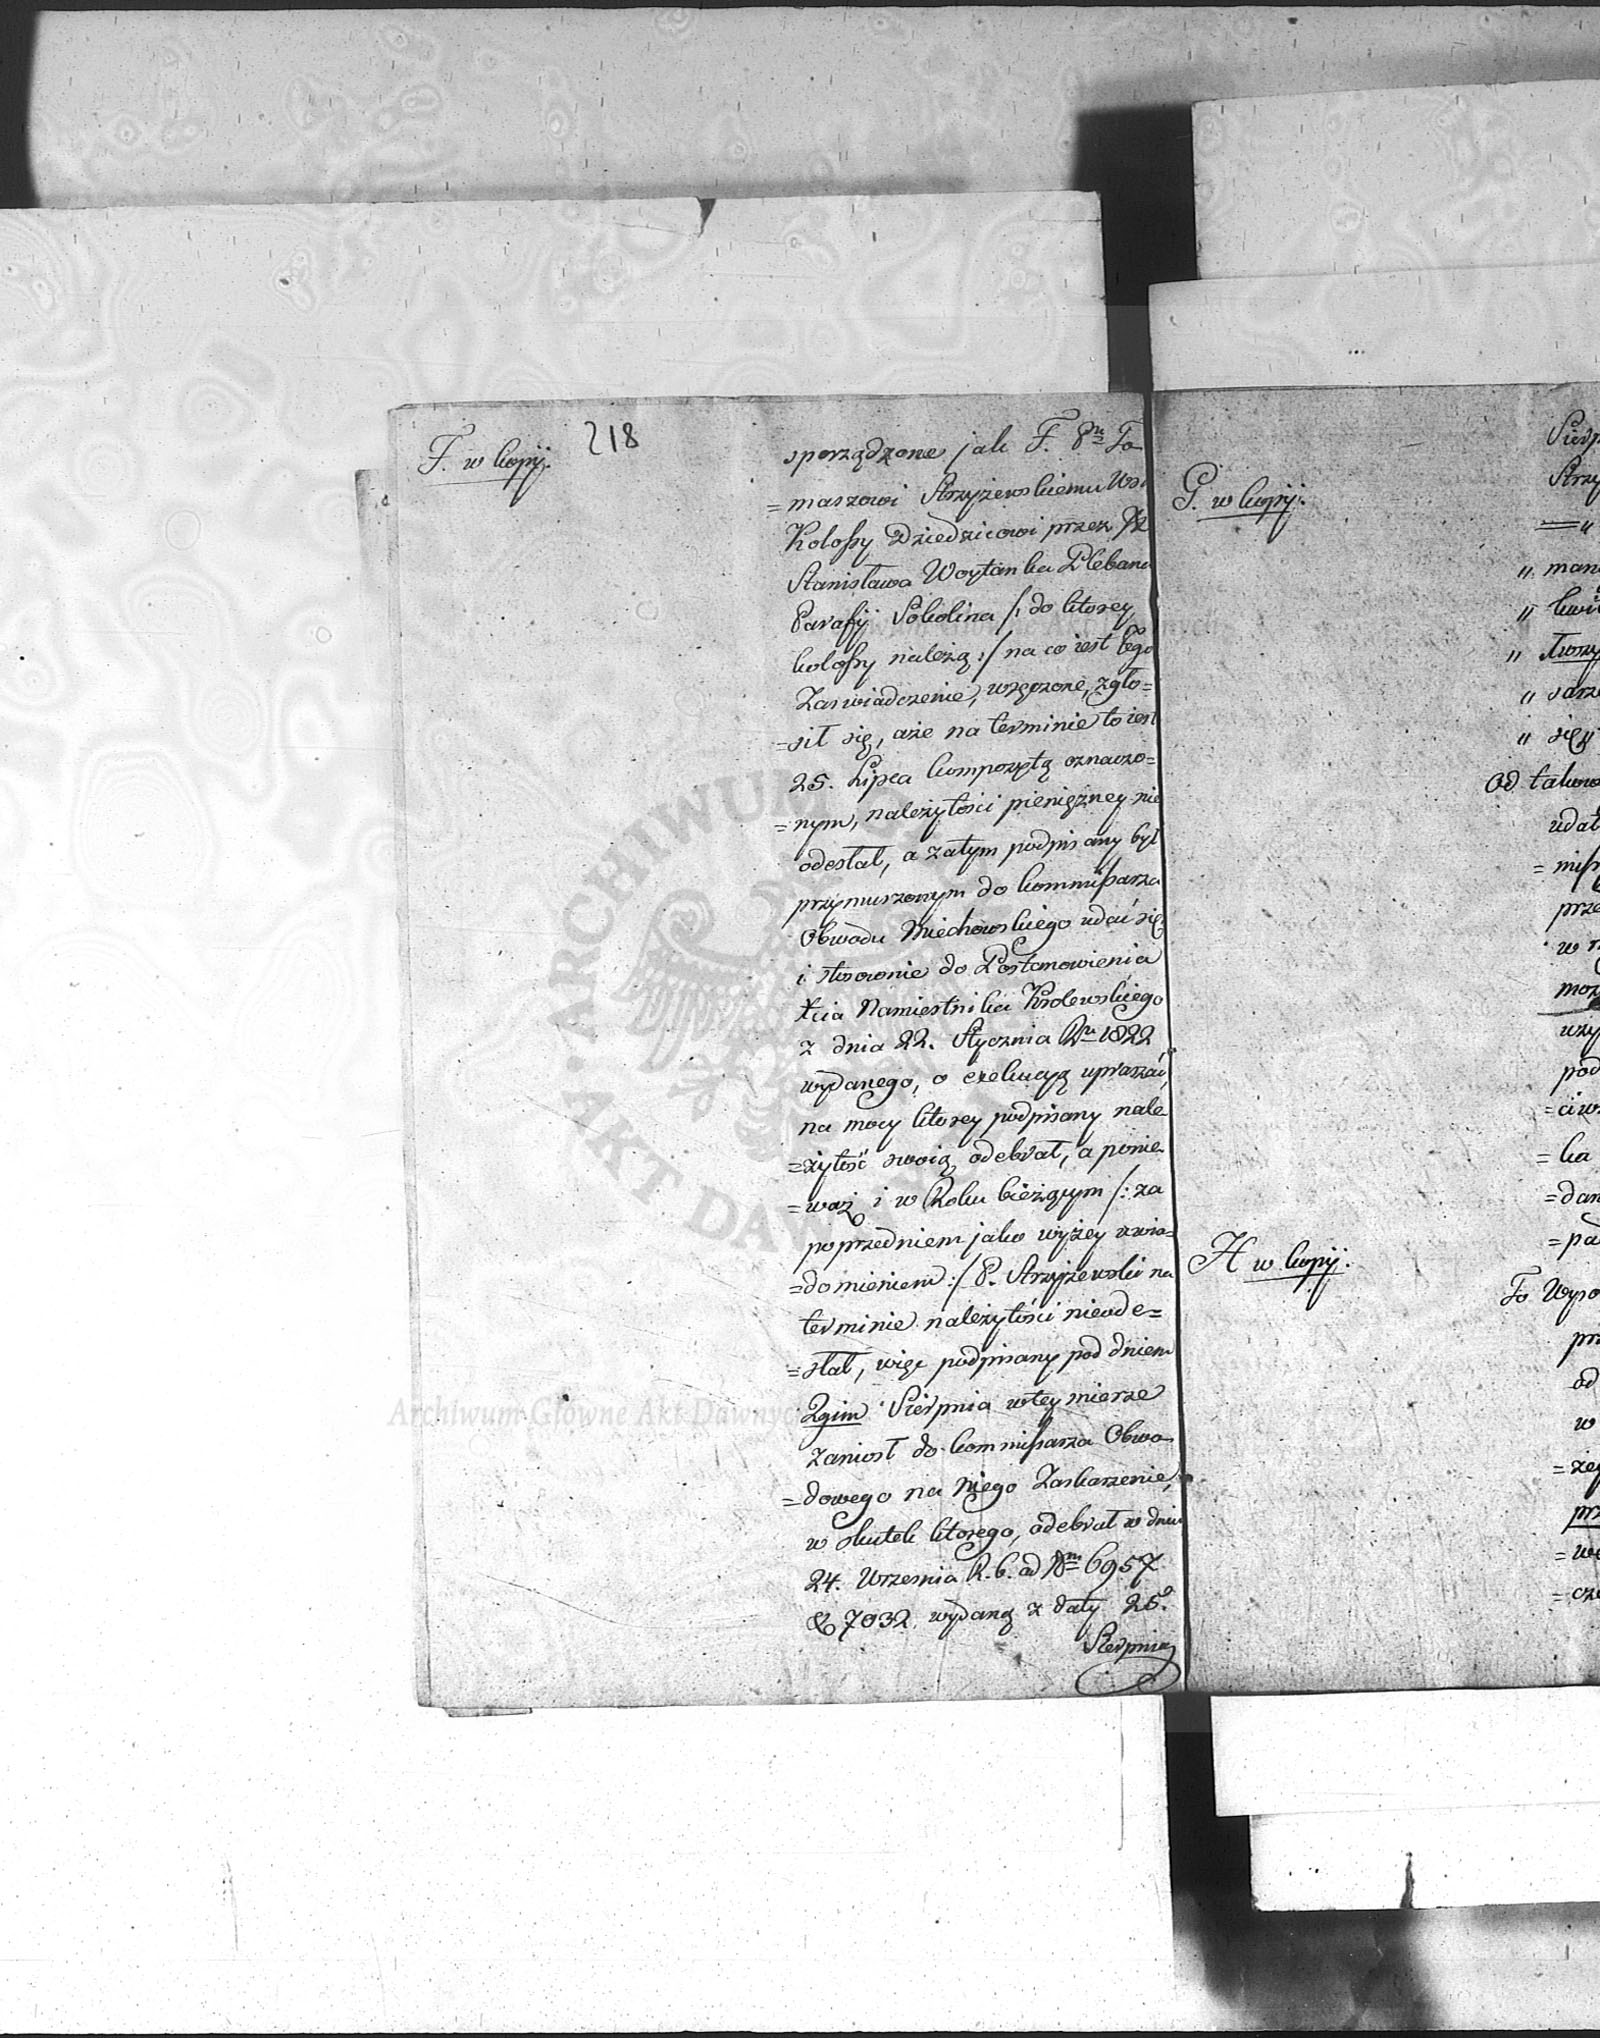 F. w kopij.
218
sporządzone jak F. Pnu To
=maszowi Strzyżewskiemu Wsi
Kolossy Dziedzicowi przez
Stanisława Woytanka Plebana
Parafij Sokolina /: do ktorey
kolossy należą :/ na co iest tego
Zaswiadczenie, wręczone, zgło=
=sił się, aże na terminie to iest
25. Lipca kompozytą oznaczo=
=nym, należytości pieniężney nie
odesłał, a zatym podpisany był
przymuszonym do kommissarza
Obwodu Miechowskiego udać się
i stosownie do Postanowienia
Xcia Namiestnika Krolewskiego
z dnia 22. Stycznia Rku 1822
wydanego, o exekucyą upraszać,
na mocy ktorey podpisany nale
=żytość swoią odebrał, a ponie
=waż i w Roku bieżącym /: za
poprzedniem jako wyżey uwia=
=domieniem :/ P. Strzyżewski na
terminie należytości nieode=
=słał, więc podpisany pod dniem
2gim Sierpnia wtey mierze
zaniosł do kommissarza Obwo
=dowego na Niego Zaskarzenie,
w skutek ktorego, odebrał w dniu
24. Wrzesnia R. b. ad Nm 6957
& 7032 wydaną z daty 25o.
Sierpnia
G. w kopij.
H w kopij.
Sierp
Strzy
"
" man
"
"
" sarze
" się
Od takowe
udał
= miss
prze
w
moż
uzy
pod
= ciw
= ka
= dan
= pa
To Wypo
prz
od
w
= żey
prz
= we
= cze